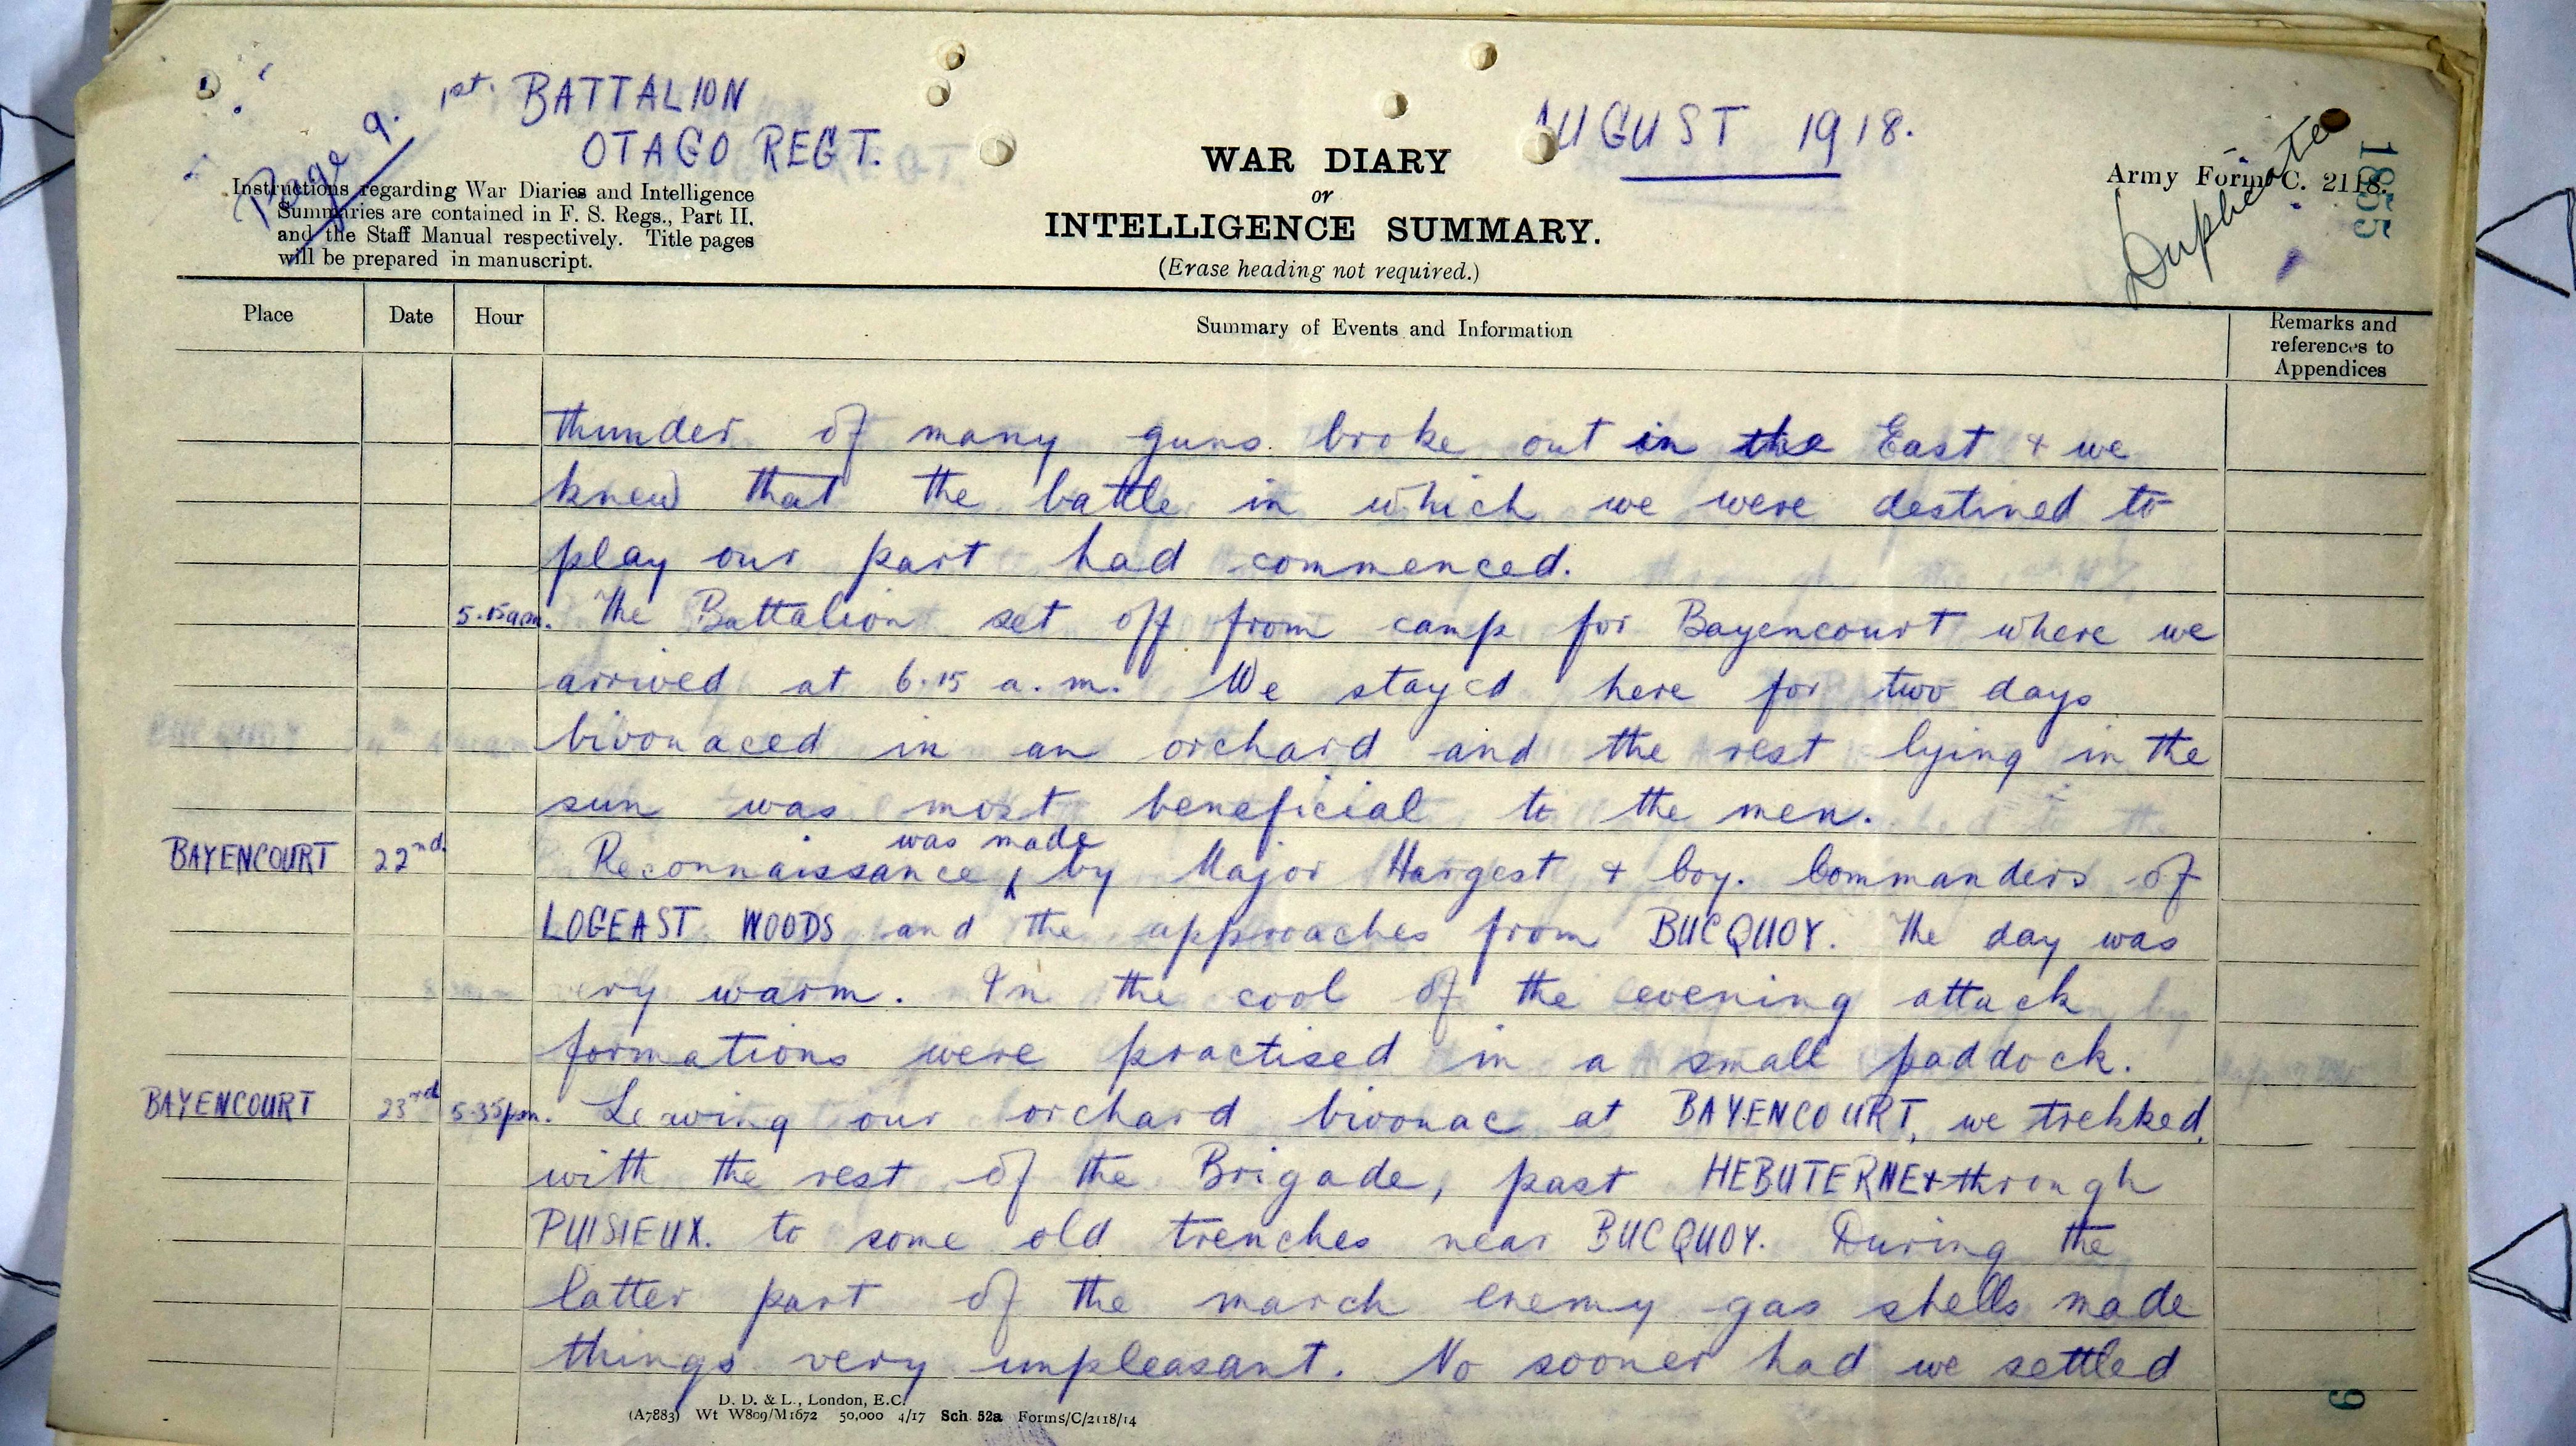 Page 9.
1st. BATTALION
OTAGO REGT.
AUGUST 1918.
Duplicate
1855
Instructions regarding War Diaries and Intelligence
Summaries are contained in F. S. Regs., Part II.
and the Staff Manual respectively. Title pages
will be prepared in manuscript.
WAR DIARY
or
INTELLIGENCE SUMMARY.
(Erase heading not required.)
Army Form C. 2118.
Place Date Hour Summary of Events and Information Remarks and
references to
Appendices
thunder of many guns broke out in the East & we
knew that the battle in which we were destined to
play our part had commenced.
5.15am. The Battalion set off from camp for Bayencourt where we
arrived at 6.15 a.m. We stayed here for two days
bivouaced in an orchard and the rest lying in the
sun was most beneficial to the men.
BAYENCOURT 22nd. Reconnaissance was made by Major Hargest & Coy. Commanders of
LOGEAST WOODS and the approaches from BUCQUOY. The day was
very warm. In the cool of the evening attack
formations were practised in a small paddock.
BAYENCOURT 23rd 5.35pm. Leaving our orchard bivouac at BAYENCOURT, we trekked,
with the rest of the Brigade, past HEBUTERNE & through
PUISIEUX. to some old trenches near BUCQUOY. During the
latter part of the march enemy gas shells made
things very unpleasant. No sooner had we settled
D. D. & L., London, E.C.
(A7883) Wt W809/M1672 50,000 4/17 Sch. 52a Forms/C/2118/14
9